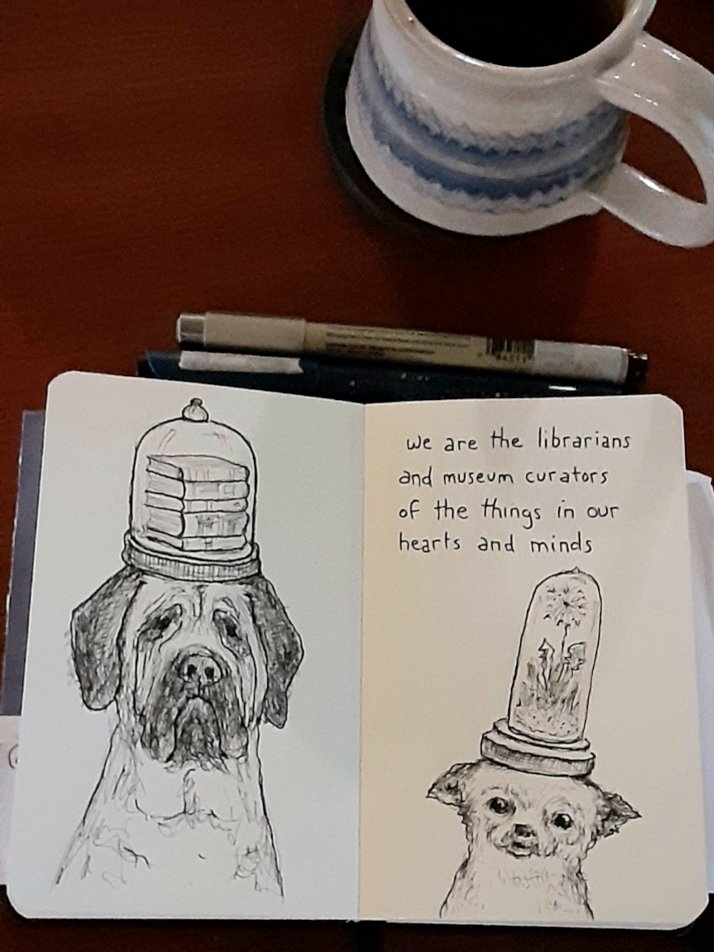 we are the librarians
and museum curators
of the things in our
hearts and minds